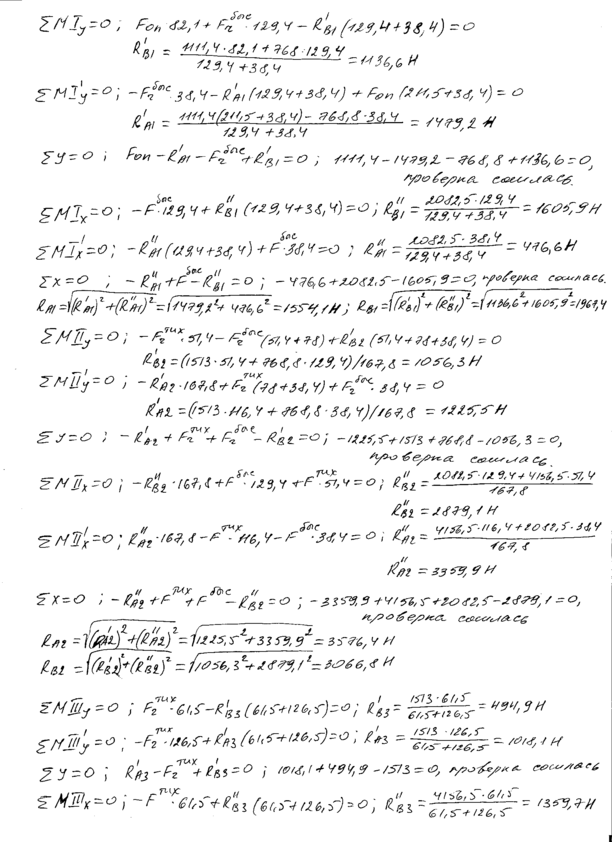 ΣMIy=0; Fоп·82,1+F₂ᵇᵖᶜ·129,4−R'B1(129,4+38,4)=0
R'B1 = (1111,4·82,1+768·129,4)/(129,4+38,4) = 1136,6 Н
ΣMI'y=0; −F₂ᵇᵖᶜ·38,4−R'A1(129,4+38,4)+Fоп(211,5+38,4)=0
R'A1 = (1111,4(211,5+38,4)−768,8·38,4)/(129,4+38,4) = 1479,2 Н
Σy=0; Fоп−R'A1−F₂ᵇᵖᶜ+R'B1=0; 1111,4−1479,2−768,8+1136,6=0,
проверка сошлась.
ΣMIx=0; −Fᵇᵖᶜ·129,4+R''B1(129,4+38,4)=0; R''B1=(2082,5·129,4)/(129,4+38,4)=1605,9 Н
ΣMI'x=0; −R''A1(129,4+38,4)+Fᵇᵖᶜ·38,4=0; R''A1=(2082,5·38,4)/(129,4+38,4)=476,6 Н
Σx=0; −R''A1+Fᵇᵖᶜ−R''B1=0; −476,6+2082,5−1605,9=0, проверка сошлась.
RA1=√((R'A1)²+(R''A1)²)=√(1479,2²+476,6²)=1554,1 Н; RB1=√((R'B1)²+(R''B1)²)=√(1136,6²+1605,9²)=1967,4
ΣMIIy=0; −F₂ᵀᵘˣ·51,4−F₂ᵇᵖᶜ(51,4+78)+R'B2(51,4+78+38,4)=0
R'B2=(1513·51,4+768,8·129,4)/167,8=1056,3 Н
ΣMII'y=0; −R'A2·167,8+F₂ᵀᵘˣ(78+38,4)+F₂ᵇᵖᶜ·38,4=0
R'A2=(1513·116,4+768,8·38,4)/167,8=1225,5 Н
Σy=0; −R'A2+F₂ᵀᵘˣ+F₂ᵇᵖᶜ−R'B2=0; −1225,5+1513+768,8−1056,3=0,
проверка сошлась.
ΣMIIx=0; −R''B2·167,8+Fᵇᵖᶜ·129,4+Fᵀᵘˣ·51,4=0; R''B2=(2082,5·129,4+4156,5·51,4)/167,8
R''B2=2879,1 Н
ΣMII'x=0; R''A2·167,8−Fᵀᵘˣ·116,4−Fᵇᵖᶜ·38,4=0; R''A2=(4156,5·116,4+2082,5·38,4)/167,8
R''A2=3359,9 Н
Σx=0; −R''A2+Fᵀᵘˣ+Fᵇᵖᶜ−R''B2=0; −3359,9+4156,5+2082,5−2879,1=0,
проверка сошлась
RA2=√((R'A2)²+(R''A2)²)=√(1225,5²+3359,9²)=3576,4 Н
RB2=√((R'B2)²+(R''B2)²)=√(1056,3²+2879,1²)=3066,8 Н
ΣMIIIy=0; F₂ᵀᵘˣ·61,5−R'B3(61,5+126,5)=0; R'B3=(1513·61,5)/(61,5+126,5)=494,9 Н
ΣMIII'y=0; −F₂ᵀᵘˣ·126,5+R'A3(61,5+126,5)=0; R'A3=(1513·126,5)/(61,5+126,5)=1018,1 Н
Σy=0; R'A3−F₂ᵀᵘˣ+R'B3=0; 1018,1+494,9−1513=0, проверка сошлась
ΣMIIIx=0; −Fᵀᵘˣ·61,5+R''B3(61,5+126,5)=0; R''B3=(4156,5·61,5)/(61,5+126,5)=1359,7 Н